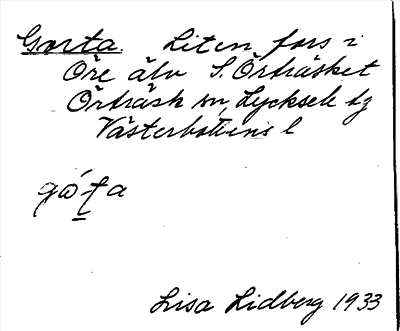 Garta. Liten fors i
Öre älv S. Örträsket
Örträsk sn, Lycksele tg
Västerbottens l
Lisa Lidberg 1933